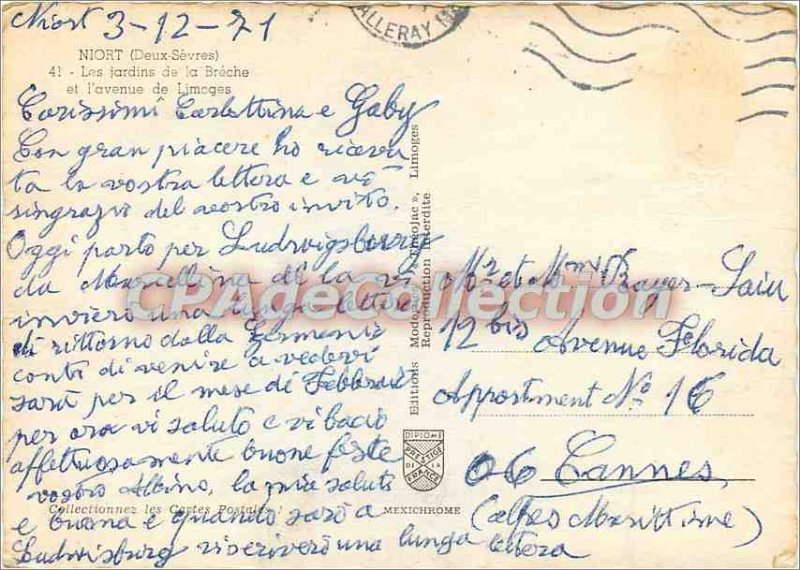 Niort 3-12-71
ALLERAY
NIORT (Deux-Sèvres)
41 - Les jardins de la Brèche
et l'avenue de Limoges
Carissimi Carlettina e Gaby
Con gran piacere ho ricevu
ta la vostra lettera e vi
ringrazio del vostro invito.
Oggi parto per Ludwigsburg
da Marcellina di la vi
invierò una lunga lettera
di rittorno dalla Germania
conti di venire a vedervi
sarà per il mese di Febbraio
per ora vi saluto e vi bacio
affettuosamente buone feste
vostro Albino, la mia salute
e buona e quando sarò a
Ludwisburg riscriverò una lunga lettera
Collectionnez les Cartes Postales
MEXICHROME
Editions Modernes « Théojac », Limoges
Reproduction Interdite
DIPLOME
PRESTIGE
DE LA
FRANCE
Mr et Mme Bayer-Saiu
12 bis Avenue Florida
Appartment No 16
06 Cannes
(Alpes Marittime)
CPAdeCollection